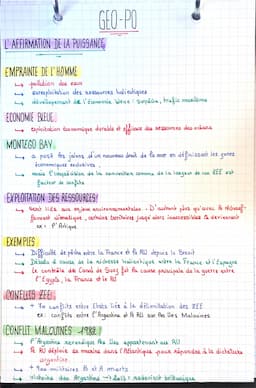 GEO-PO
L'AFFIRMATION DE LA PUISSANCE
EMPRAINTE DE L'HOMME
→ pollution des eaux
→ surexploitation des ressources halieutiques
→ développement de l'économie bleue : surpêche, trafic maritime
ECONOMIE BLEUE
→ exploitation économique durable et efficace des ressources des océans
MONTEGO BAY
→ a posé les jalons d'un nouveau droit de la mer en définissant les zones
économiques exclusives.
→ mais l'inégalité de la convention comme de la largeur de la ZEE est
facteur de conflits
EXPLOITATION DES RESSOURCES
→ sont liés aux enjeux environnementaux. D'autant plus qu'avec le réchauf-
fement climatique, certains territoires jusqu'alors inaccessibles le deviennent
ex : l'Artique
EXEMPLES
→ Difficulté de pêche entre la France et le RU depuis le Brexit
→ Débats à cause de la richesse halieutique entre la France et l'Espagne
→ Le contrôle du Canal de Suez fut la cause principale de la guerre entre
l'Egypte, la France et le RU
CONFLITS ZEE
→ + 70 conflits entre Etats liés à la délimitation des ZEE
ex : conflits entre l'Argentine et le RU sur les îles Malouines
CONFLIT MALOUINES 1982
→ l'Argentine revendique les îles appartenant au RU
→ Le RU déploie sa marine dans l'Atlantique pour répondre à la dictature
argentine.
→ + 900 militaires B et A morts
→ victoire des Argentins → îles redevient britannique